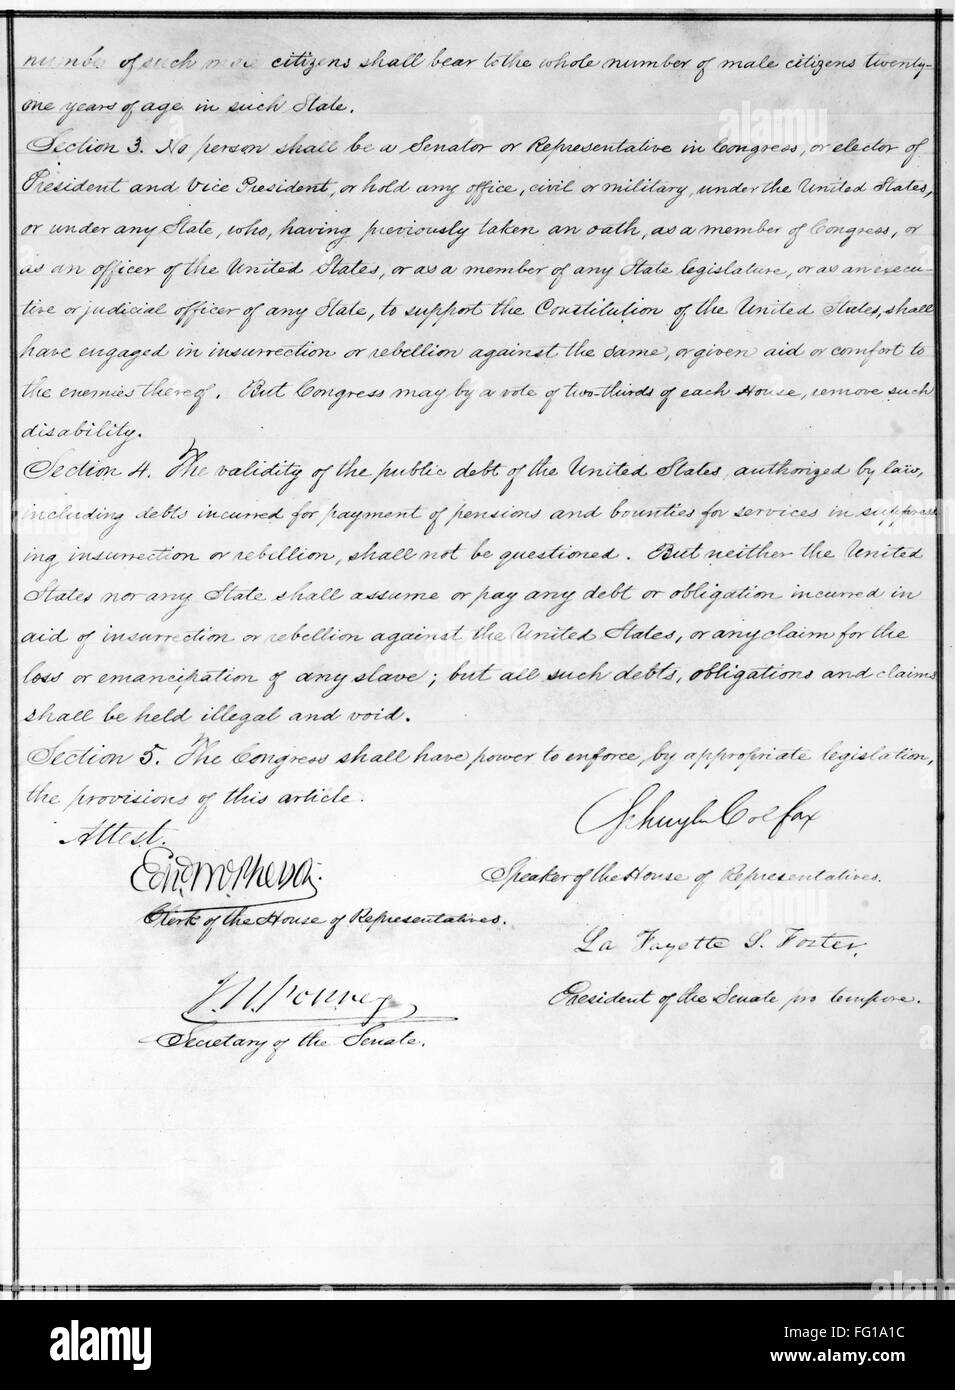 number of such male citizens shall bear to the whole number of male citizens twenty-
one years of age in such State.
Section 3. No person shall be a Senator or Representative in Congress, or elector of
President and Vice President, or hold any office, civil or military, under the United States,
or under any State, who, having previously taken an oath, as a member of Congress, or
as an officer of the United States, or as a member of any State legislature, or as an execu-
tive or judicial officer of any State, to support the Constitution of the United States, shall
have engaged in insurrection or rebellion against the same, or given aid or comfort to
the enemies thereof. But Congress may by a vote of two-thirds of each House, remove such
disability.
Section 4. The validity of the public debt of the United States, authorized by law,
including debts incurred for payment of pensions and bounties for services in suppress
ing insurrection or rebellion, shall not be questioned. But neither the United
States nor any State shall assume or pay any debt or obligation incurred in
aid of insurrection or rebellion against the United States, or any claim for the
loss or emancipation of any slave; but all such debts, obligations and claims
shall be held illegal and void.
Section 5. The Congress shall have power to enforce, by appropriate legislation,
the provisions of this article.
Attest.
Schuyler Colfax
Edwd. McPherson
Speaker of the House of Representatives.
Clerk of the House of Representatives.
La Fayette S. Foster,
J. W. Forney
President of the Senate pro tempore.
Secretary of the Senate.
alamy
Image ID: FG1A1C
www.alamy.com